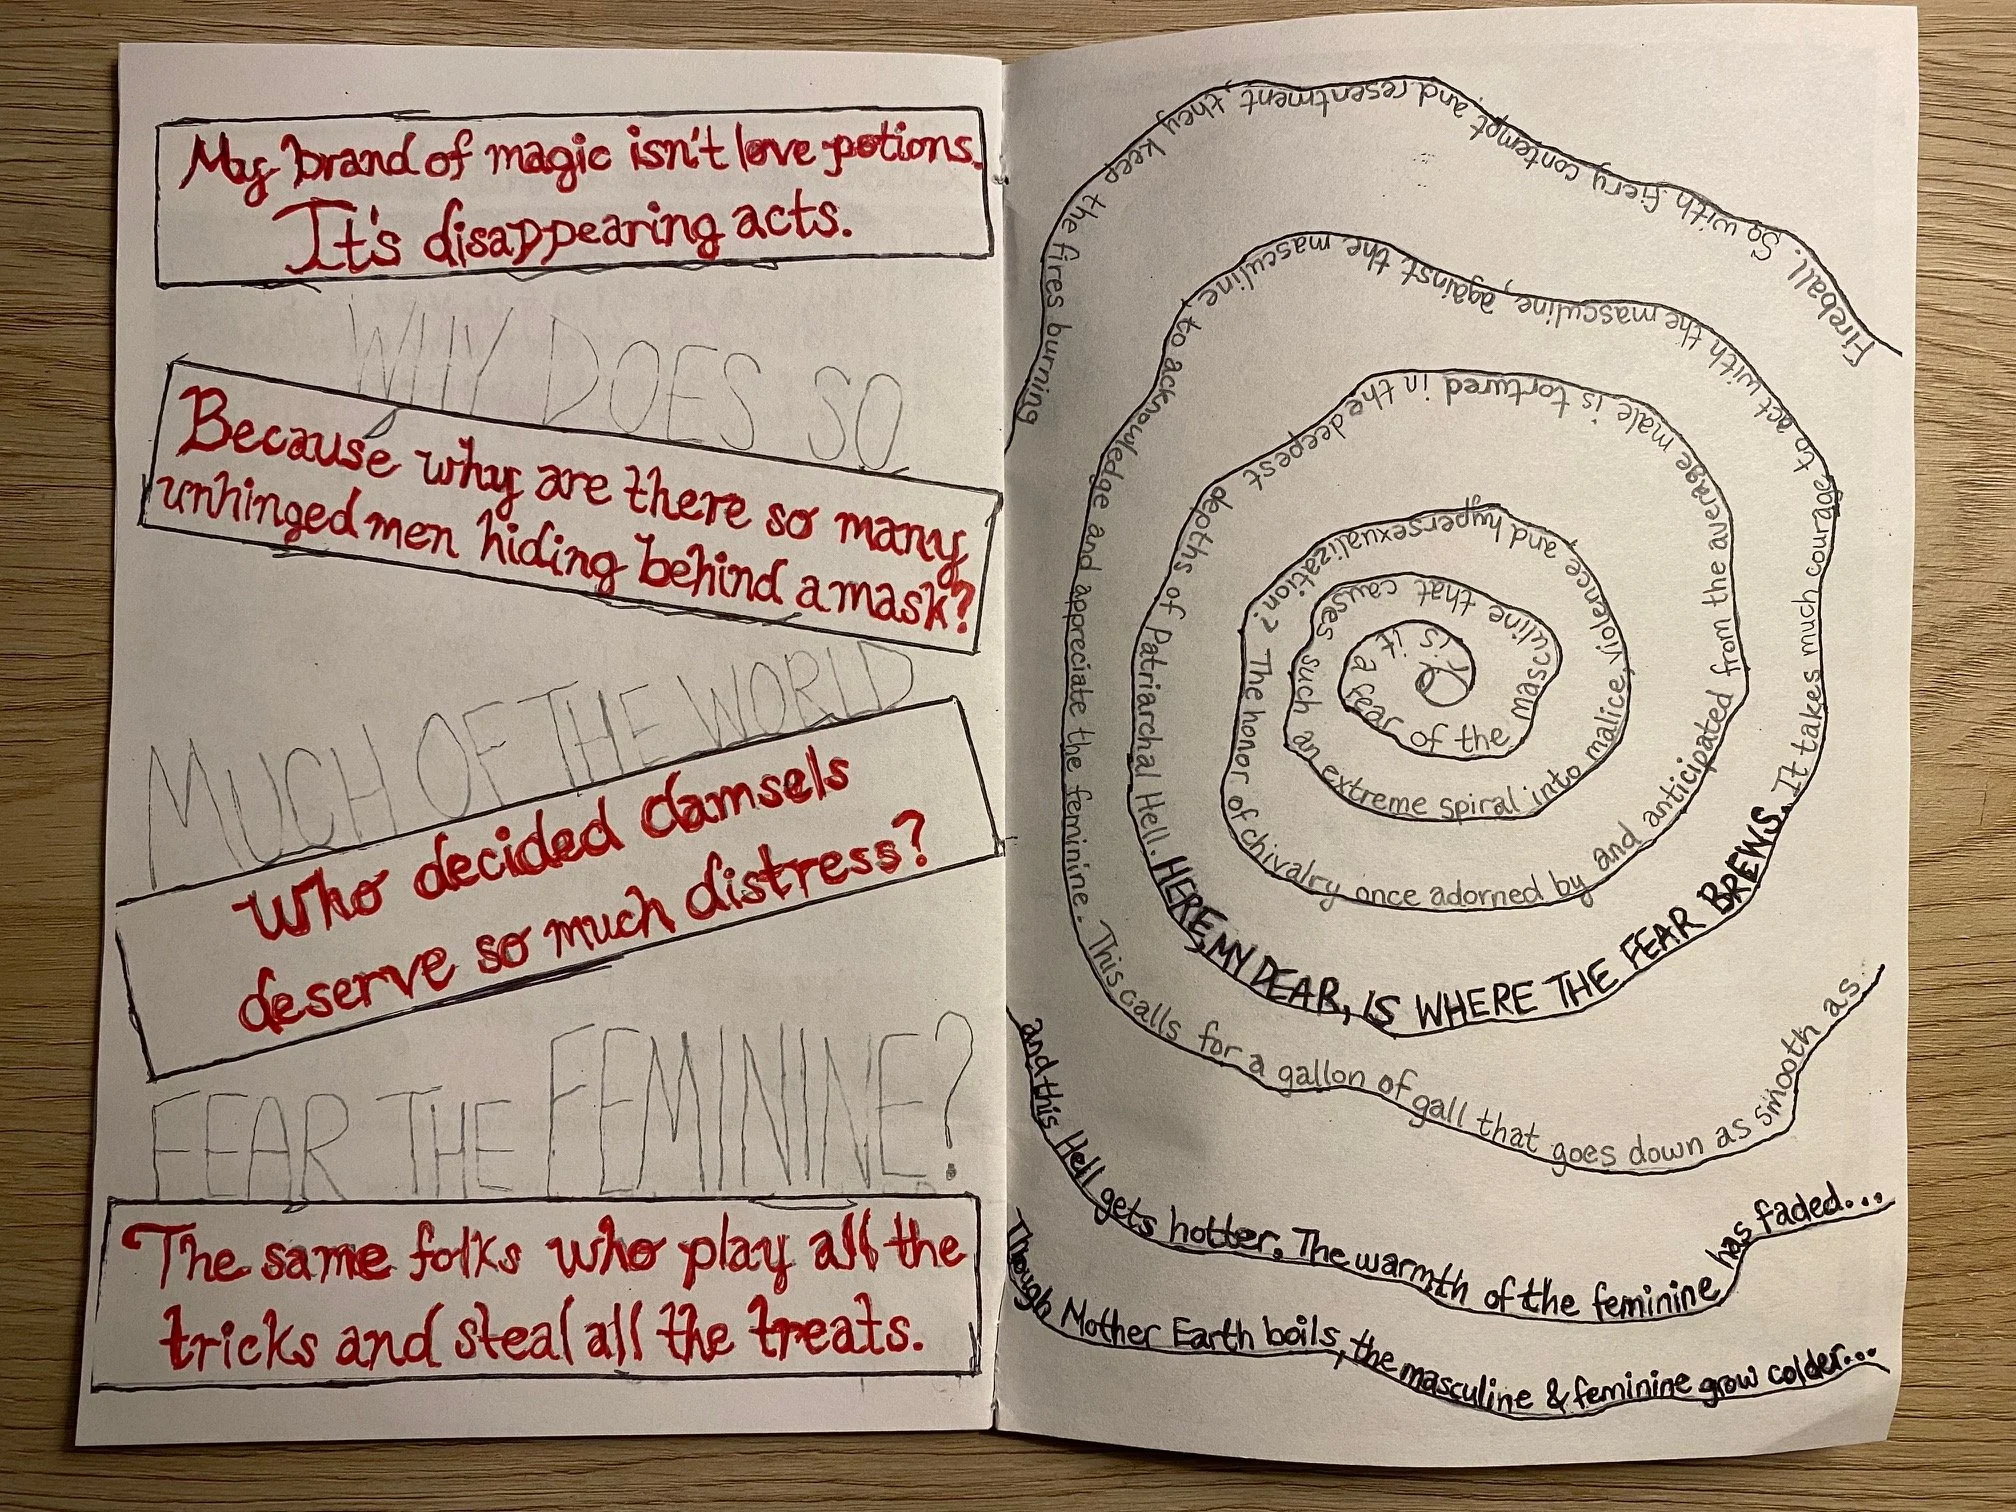 My brand of magic isn't love potions.
It's disappearing acts.
WHY DOES SO
Because why are there so many
unhinged men hiding behind a mask?
MUCH OF THE WORLD
Who decided damsels
deserve so much distress?
FEAR THE FEMININE?
The same folks who play all the
tricks and steal all the treats.
Or is it a fear of the masculine that causes such an extreme spiral into malice, violence, and hypersexualization? The honor of chivalry once adorned by and anticipated from the average male is tortured in the deepest depths of Patriarchal Hell. HERE, MY DEAR, IS WHERE THE FEAR BREWS. It takes much courage to act with the masculine, against the masculine to acknowledge and appreciate the feminine. This calls for a gallon of gall that goes down as smooth as
Fireball. So with fiery contempt and resentment, they keep the fires burning
and this Hell gets hotter. The warmth of the feminine has faded...
Though Mother Earth boils, the masculine & feminine grow colder...